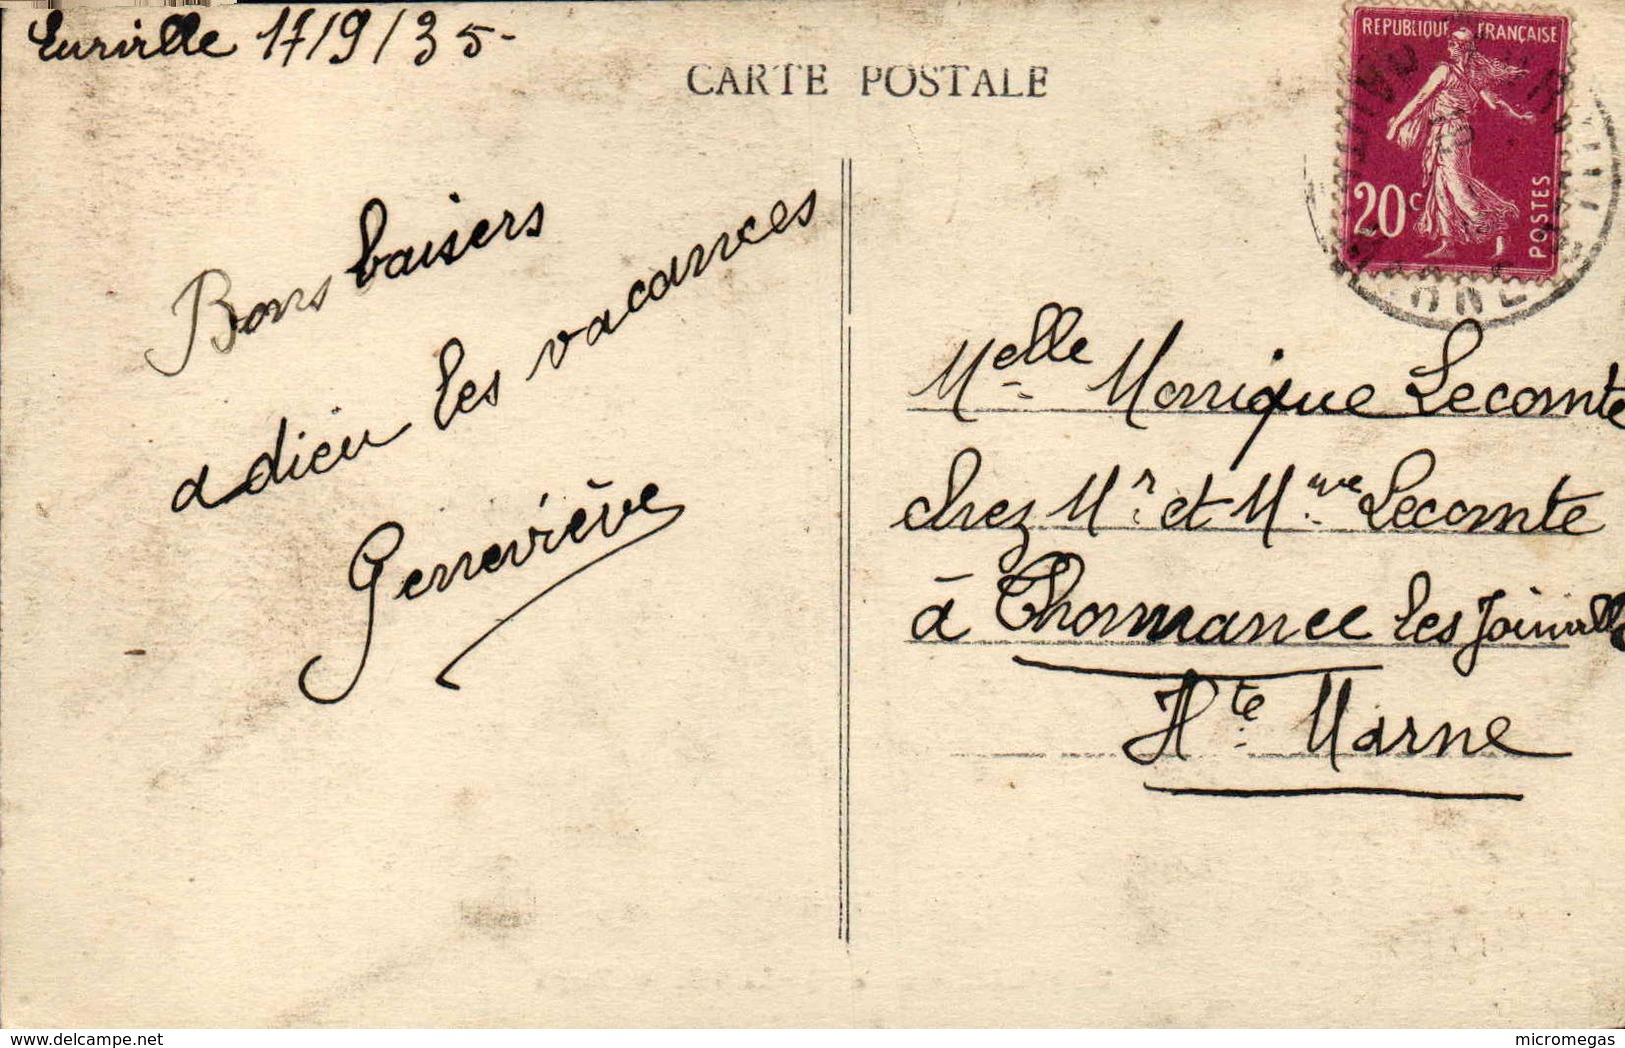 Eurville 17/9/35-
CARTE POSTALE
REPUBLIQUE FRANÇAISE
20c
POSTES
Bons baisers
adieu les vacances
Geneviève
Melle Monique Lecomte
chez Mr et Mme Lecomte
à Thonnance les Joinville
Hte Marne
delcampe.net
micromegas